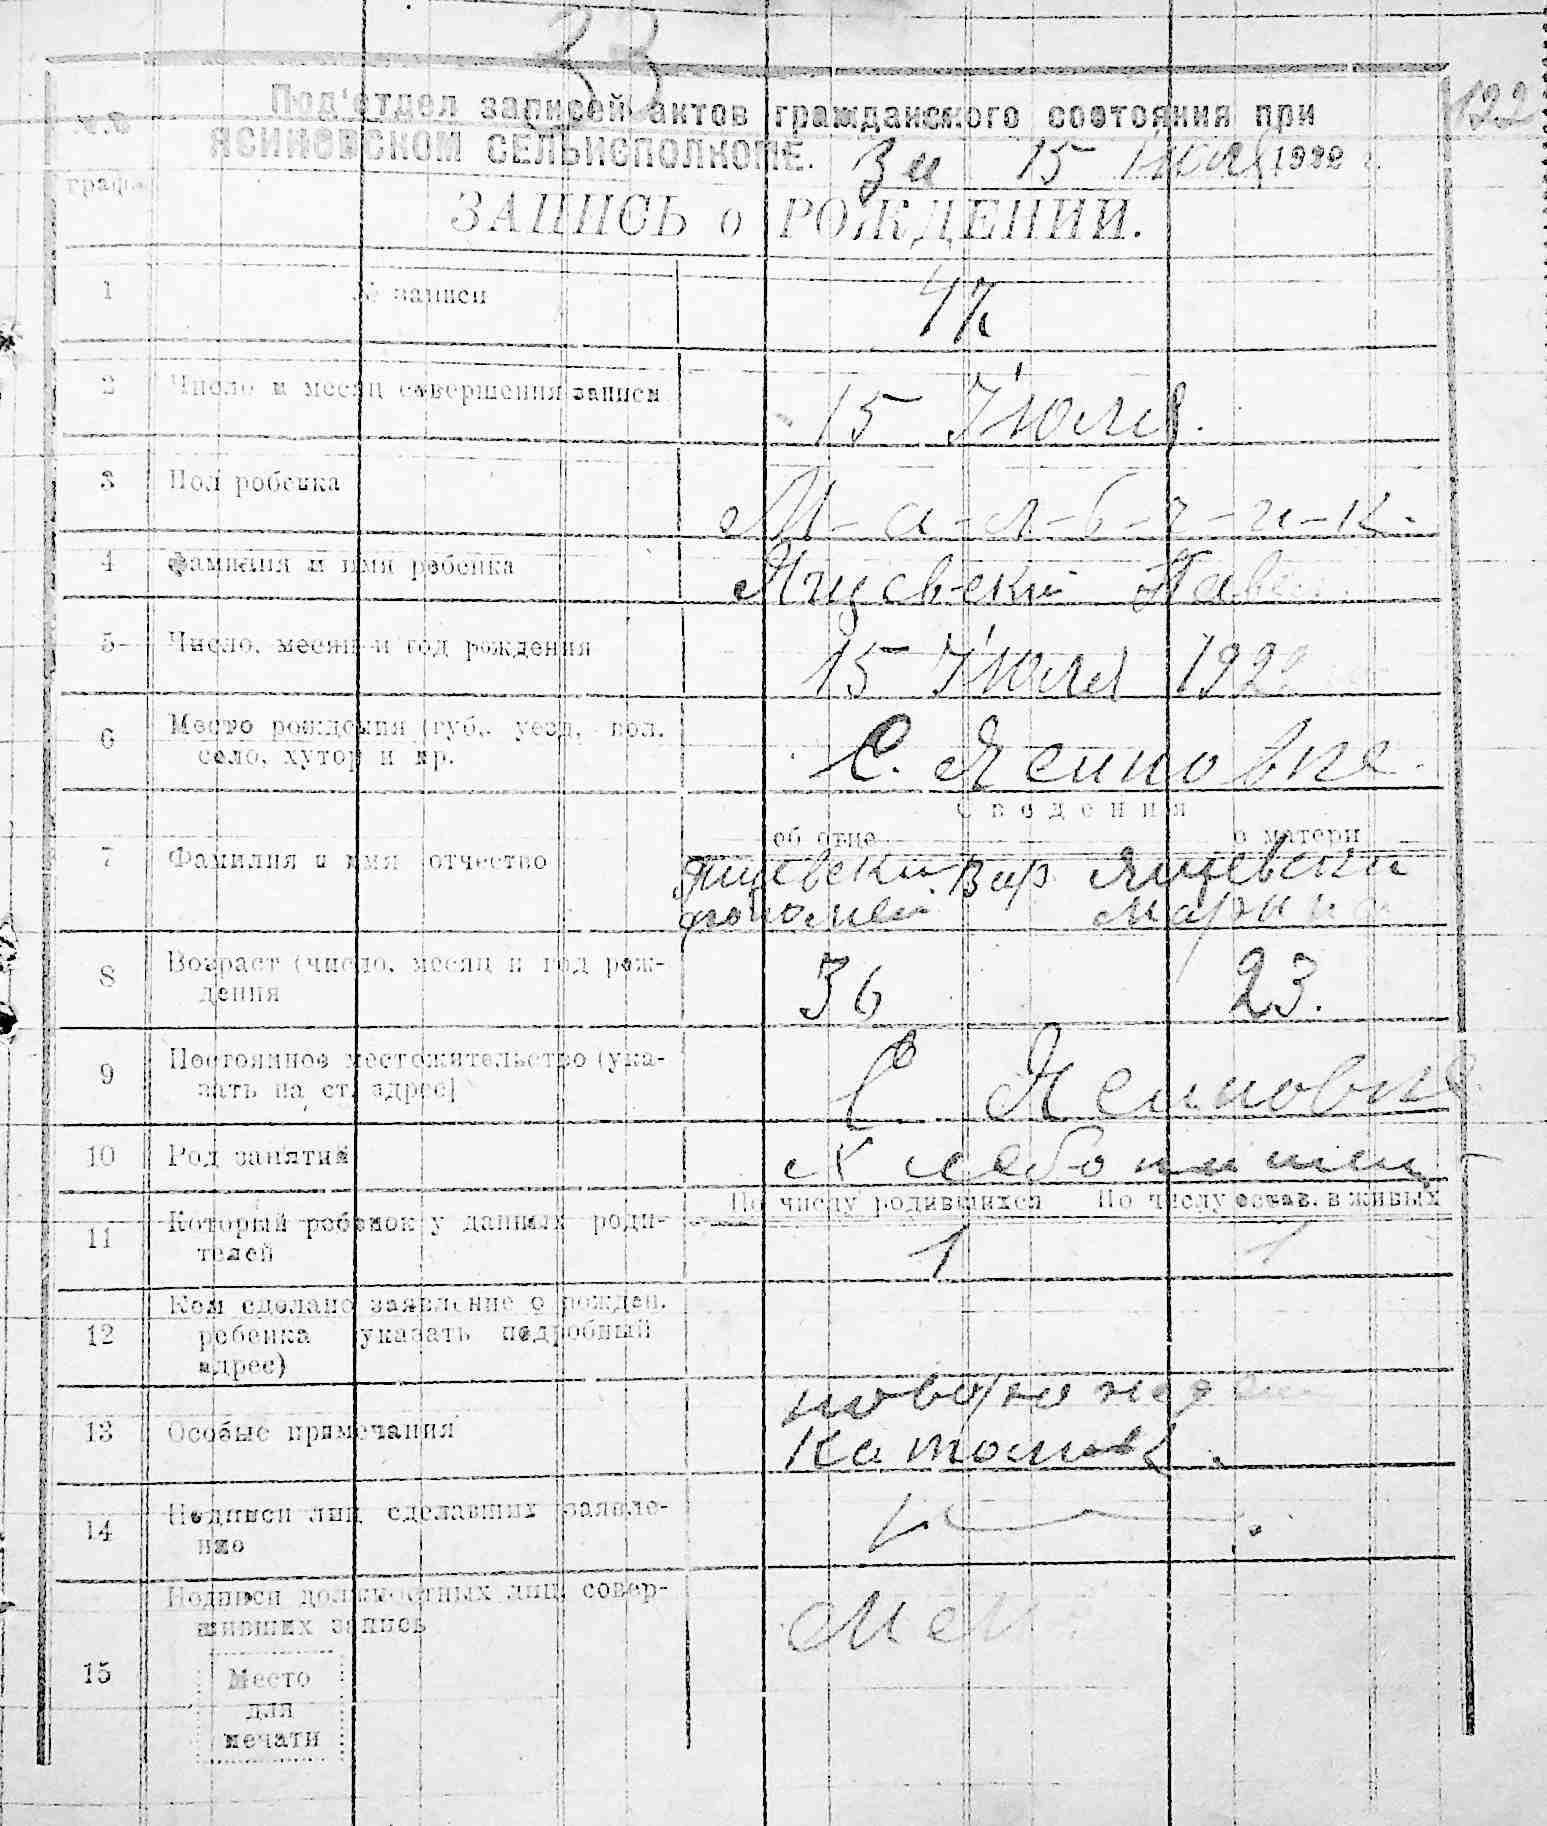 33
122
№
граф.
Под'отдел записей актов гражданского состояния при
ЯСИНЕВСКОМ СЕЛЬИСПОЛКОМЕ. За 15 Июля 1922 г.
ЗАПИСЬ о РОЖДЕНИИ.
1 № записи
2 Число и месяц совершения записи 15 Июля.
3 Пол робенка М-а-л-ь-ч-и-к-
4 Фамилия и имя ребенка Яцевски Павел
5 Число, месяц и год рождения 15 Июля 1922
6 Место рождения (губ., уезд, вол.
село, хутор и пр. С. Ясиновке.
Сведения
об отце о матери
7 Фамилия и имя отчество Яцевски Вар Яцевски
фоломей Марина
8 Возраст (число, месяц и год рож-
дения 36 23.
9 Постоянное местожительство (ука-
зать на ст. адрес) С Ясиновке
10 Род занятий Хлебопашец
По числу родившихся По числу остав. в живых
11 Который ребенок у данных роди-
телей 1 1
12 Кем сделано заявление о рожден.
ребенка указать подробный
адрес)
13 Особые примечания
Католик.
14 Подписи лиц сделавших заявле-
ние
Подписи должностных лиц совер-
шивших запись
15 Место
для
печати